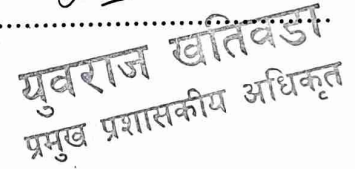 युवराज खतिवडा
प्रमुख प्रशासकीय अधिकृत